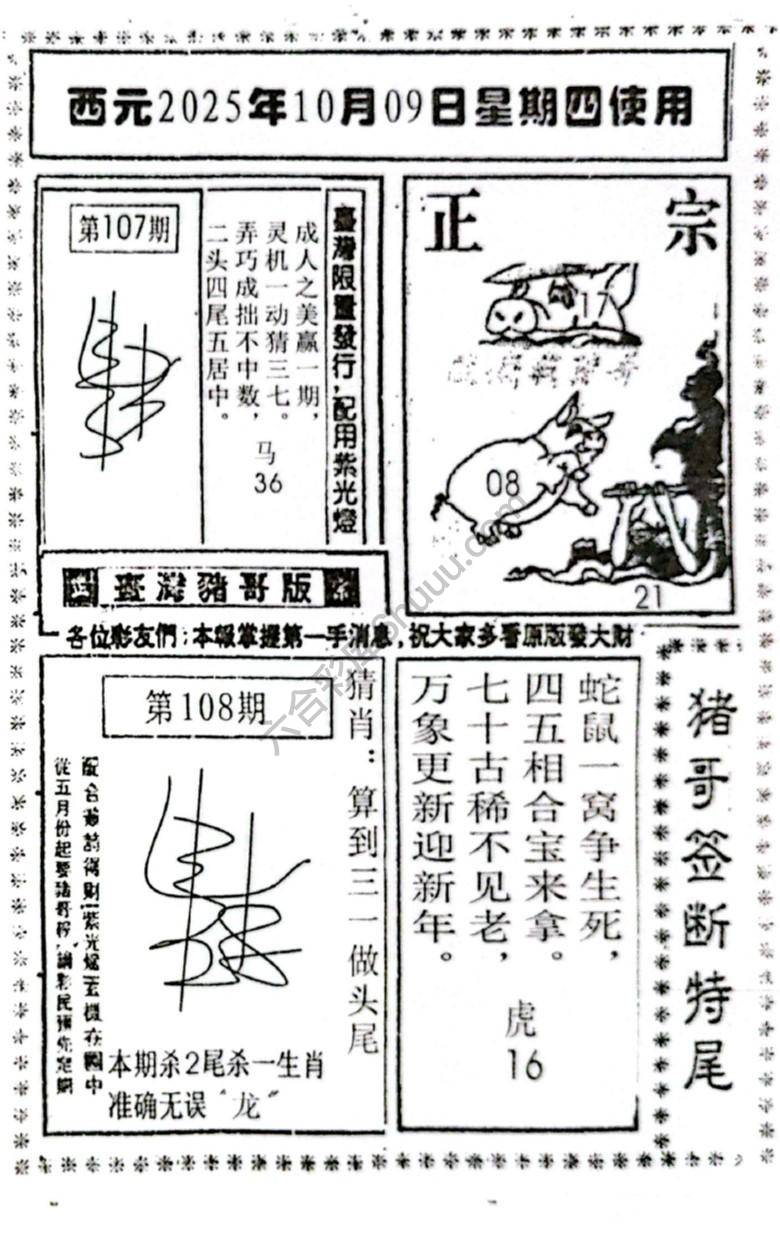 西元2025年10月09日星期四使用
第107期
臺灣限量發行，配用紫光燈
成人之美赢一期，
灵机一动猜三七。
弄巧成拙不中数，
二头四尾五居中。
马
36
正宗
17
08
21
臺灣豬哥版
各位彩友們：本報掌握第一手消息，祝大家多看原版發大財
第108期
猜肖：算到三一做头尾
從五月份起要豬哥
本期杀2尾杀一生肖
准确无误“龙”
蛇鼠一窝争生死，
四五相合宝来拿。
七十古稀不见老，
万象更新迎新年。
虎
16
猪哥签断特尾
六合彩图